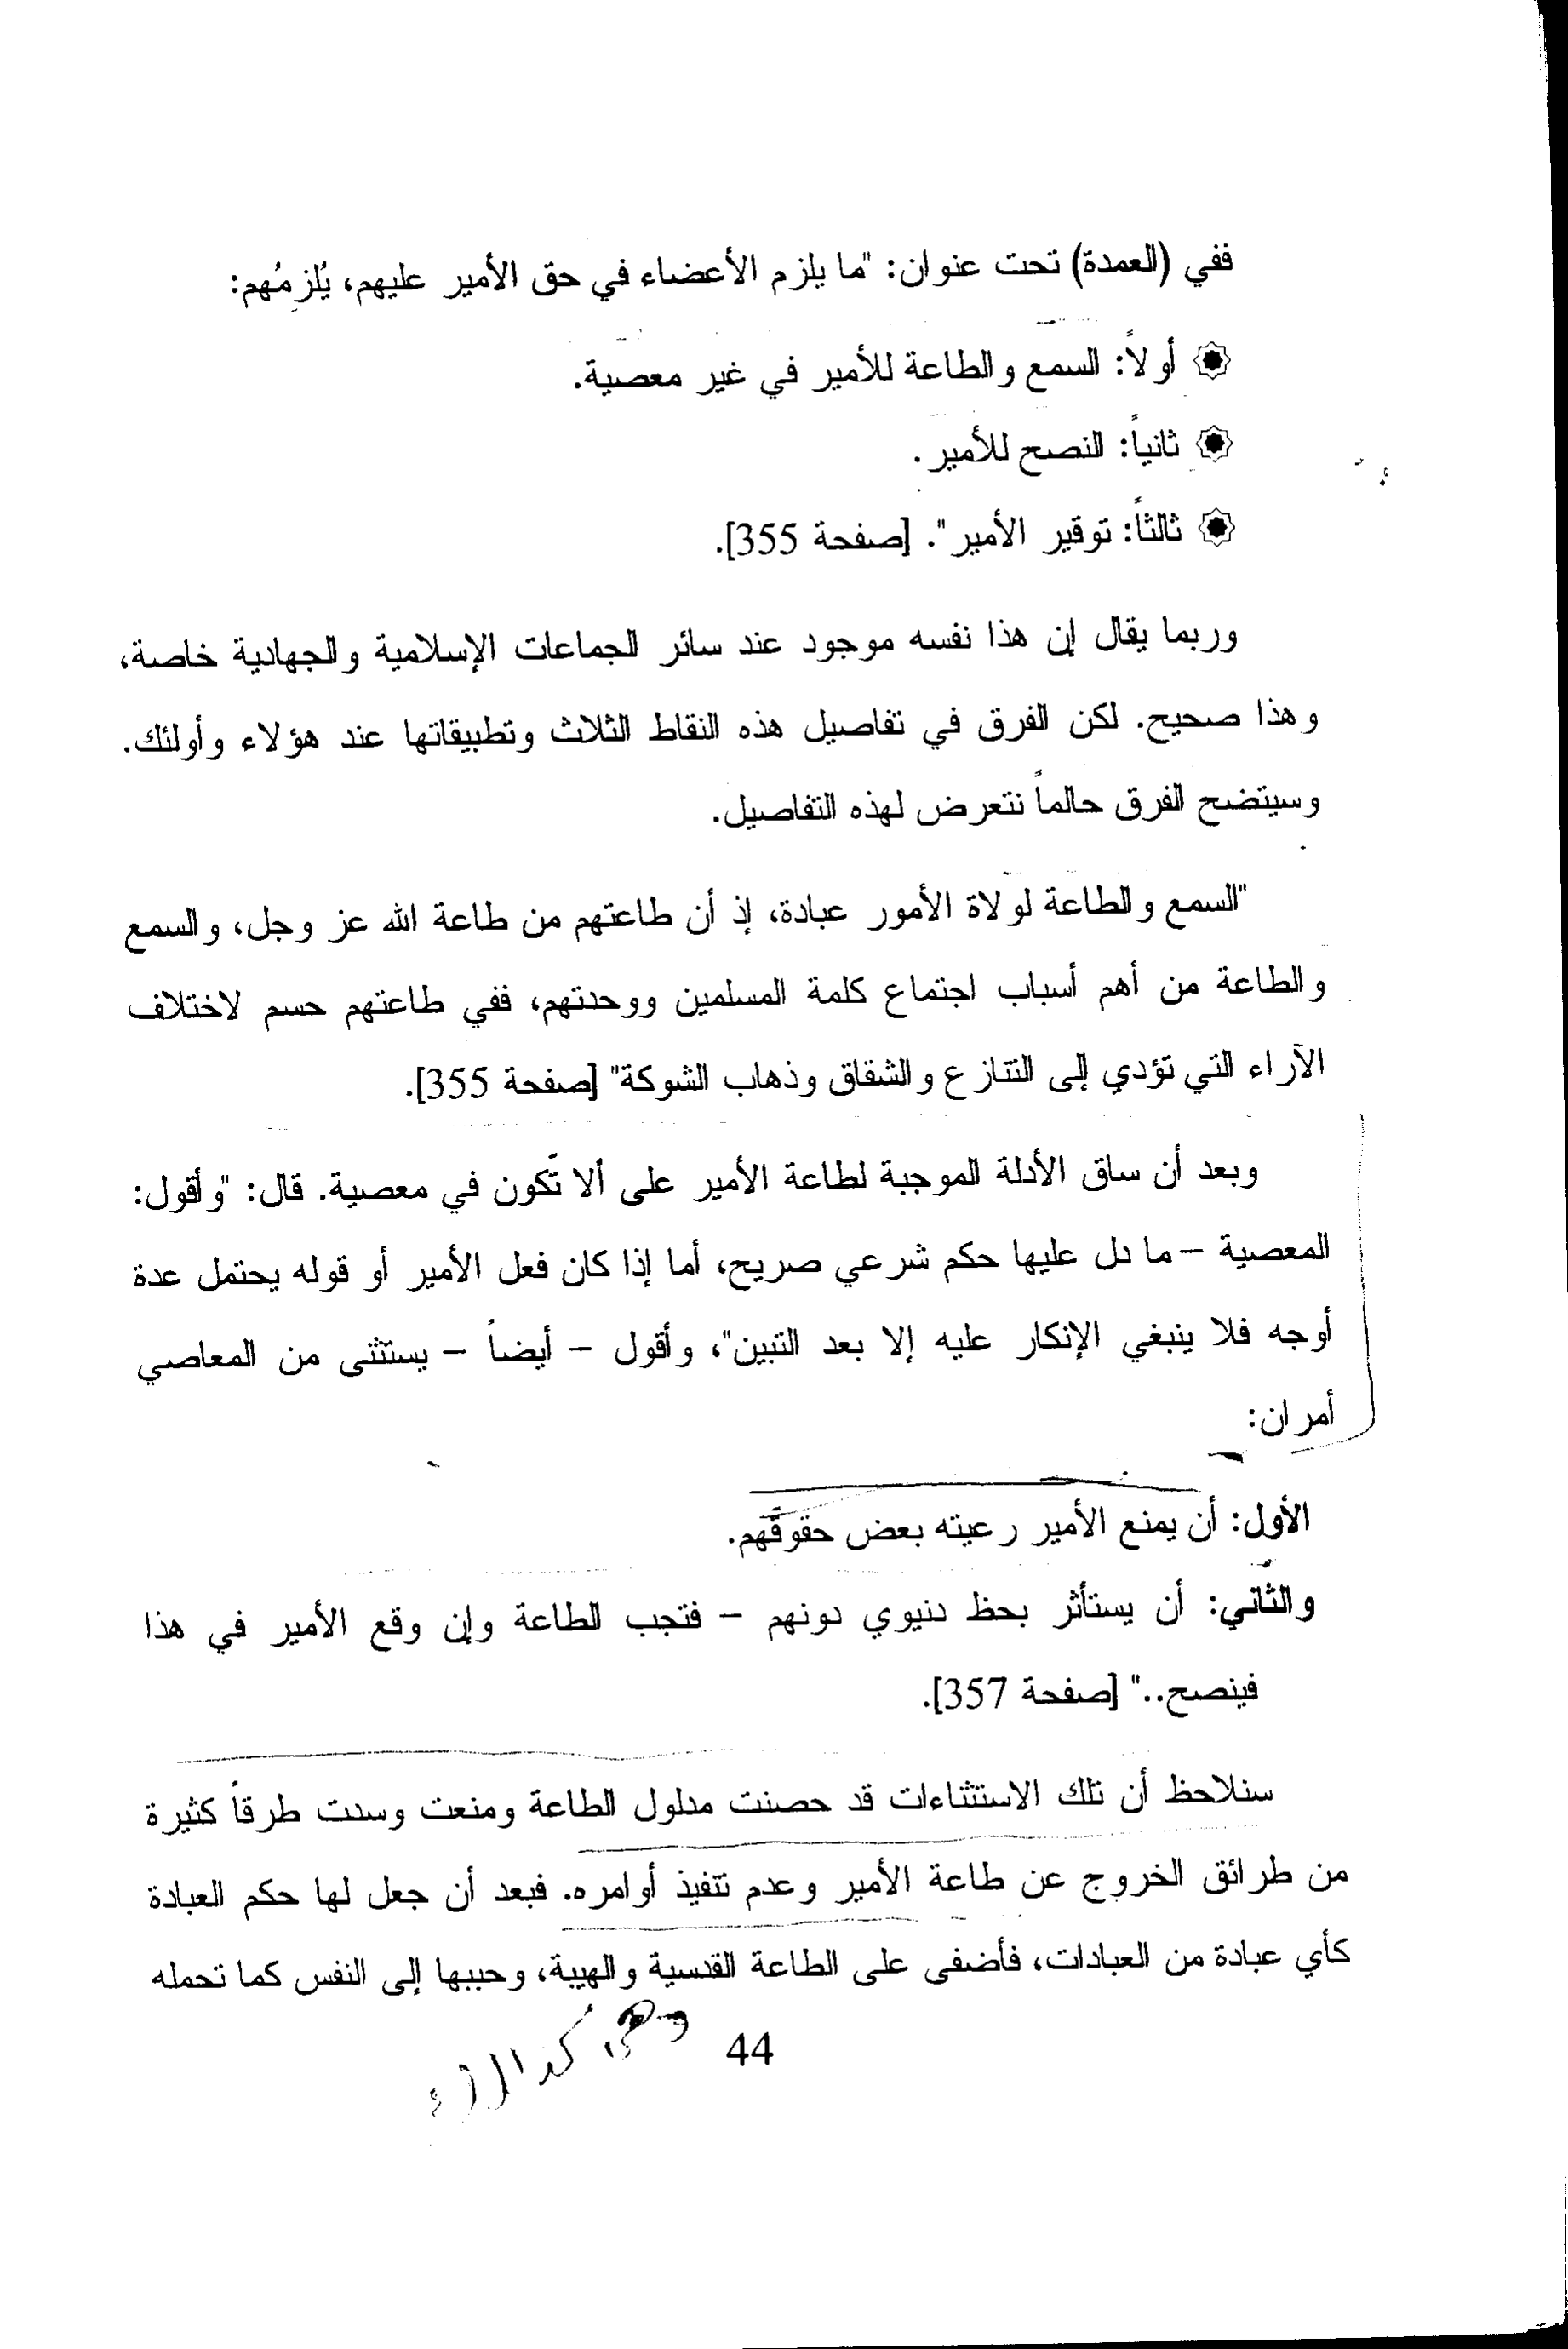 ففي (العمدة) تحت عنوان: "ما يلزم الأعضاء في حق الأمير عليهم، يُلزمُهم:
أولاً: السمع والطاعة للأمير في غير معصية.
ثانياً: النصح للأمير.
ثالثاً: توقير الأمير". [صفحة 355].
وربما يقال إن هذا نفسه موجود عند سائر الجماعات الإسلامية والجهادية خاصة،
وهذا صحيح. لكن الفرق في تفاصيل هذه النقاط الثلاث وتطبيقاتها عند هؤلاء وأولئك.
وسيتضح الفرق حالماً نتعرض لهذه التفاصيل.
"السمع والطاعة لولاة الأمور عبادة، إذ أن طاعتهم من طاعة الله عز وجل، والسمع
والطاعة من أهم أسباب اجتماع كلمة المسلمين ووحدتهم، ففي طاعتهم حسم لاختلاف
الآراء التي تؤدي إلى التنازع والشقاق وذهاب الشوكة" [صفحة 355].
وبعد أن ساق الأدلة الموجبة لطاعة الأمير على ألا تكون في معصية. قال: "وأقول:
المعصية – ما دل عليها حكم شرعي صريح، أما إذا كان فعل الأمير أو قوله يحتمل عدة
أوجه فلا ينبغي الإنكار عليه إلا بعد التبين"، وأقول – أيضاً – يستثنى من المعاصي
أمران:
الأول: أن يمنع الأمير رعيته بعض حقوقهم.
والثاني: أن يستأثر بحظ دنيوي دونهم – فتجب الطاعة وإن وقع الأمير في هذا
فينصح.." [صفحة 357].
سنلاحظ أن تلك الاستثناءات قد حصنت مدلول الطاعة ومنعت وسدت طرقاً كثيرة
من طرائق الخروج عن طاعة الأمير وعدم تنفيذ أوامره. فبعد أن جعل لها حكم العبادة
كأي عبادة من العبادات، فأضفى على الطاعة القدسية والهيبة، وحببها إلى النفس كما تحمله
44